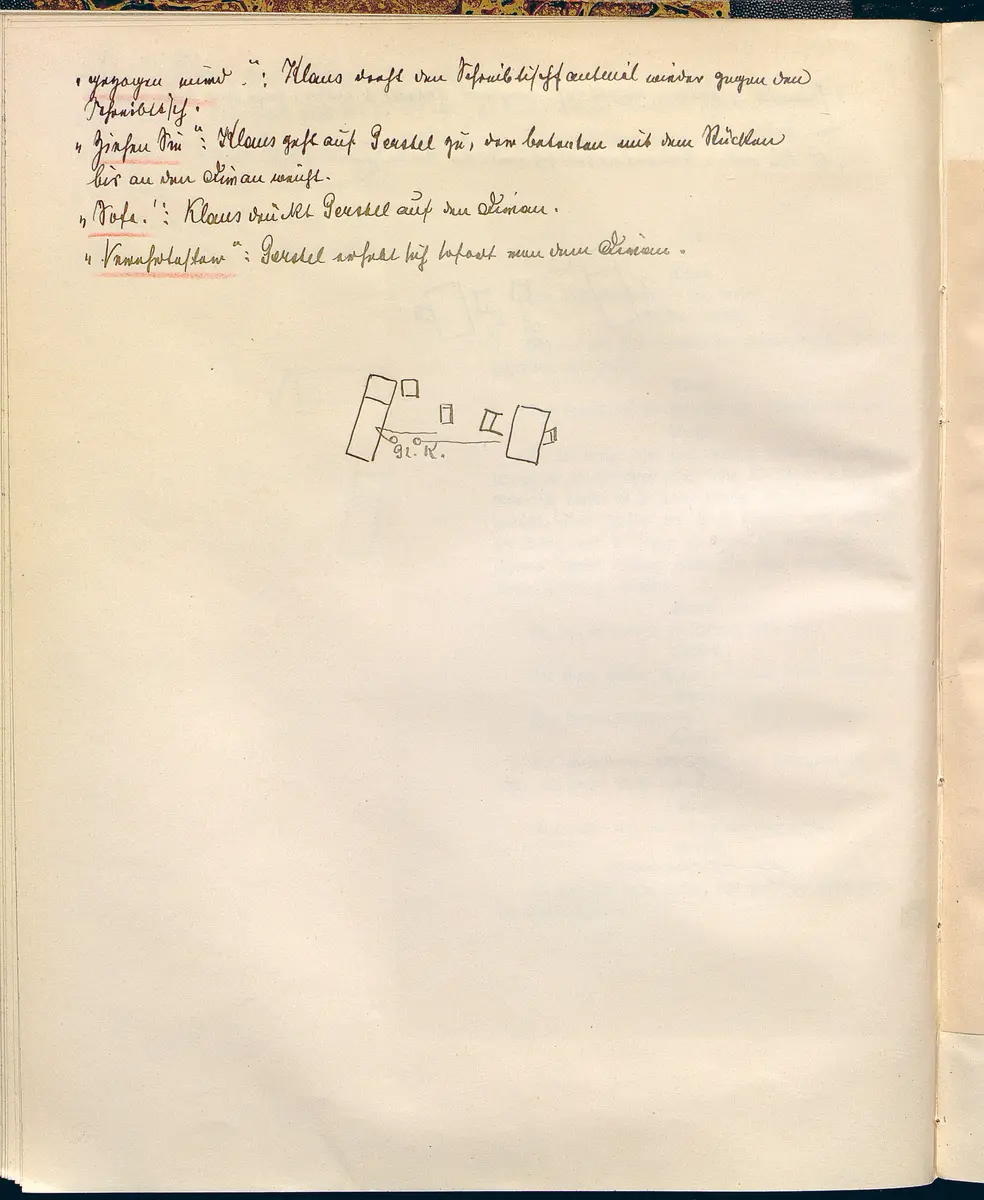 „gezogen wird.“: Klaus dreht den Schreibtischfauteuil wieder gegen den
Schreibtisch.
„Ziehen Sie“: Klaus geht auf Gerstel zu, der betreten mit dem Rücken
bis an den Divan weicht.
„Sofa.“: Klaus drückt Gerstel auf den Divan.
„Verwahrkasten“: Gerstel erhebt sich sofort von dem Divan.
K.